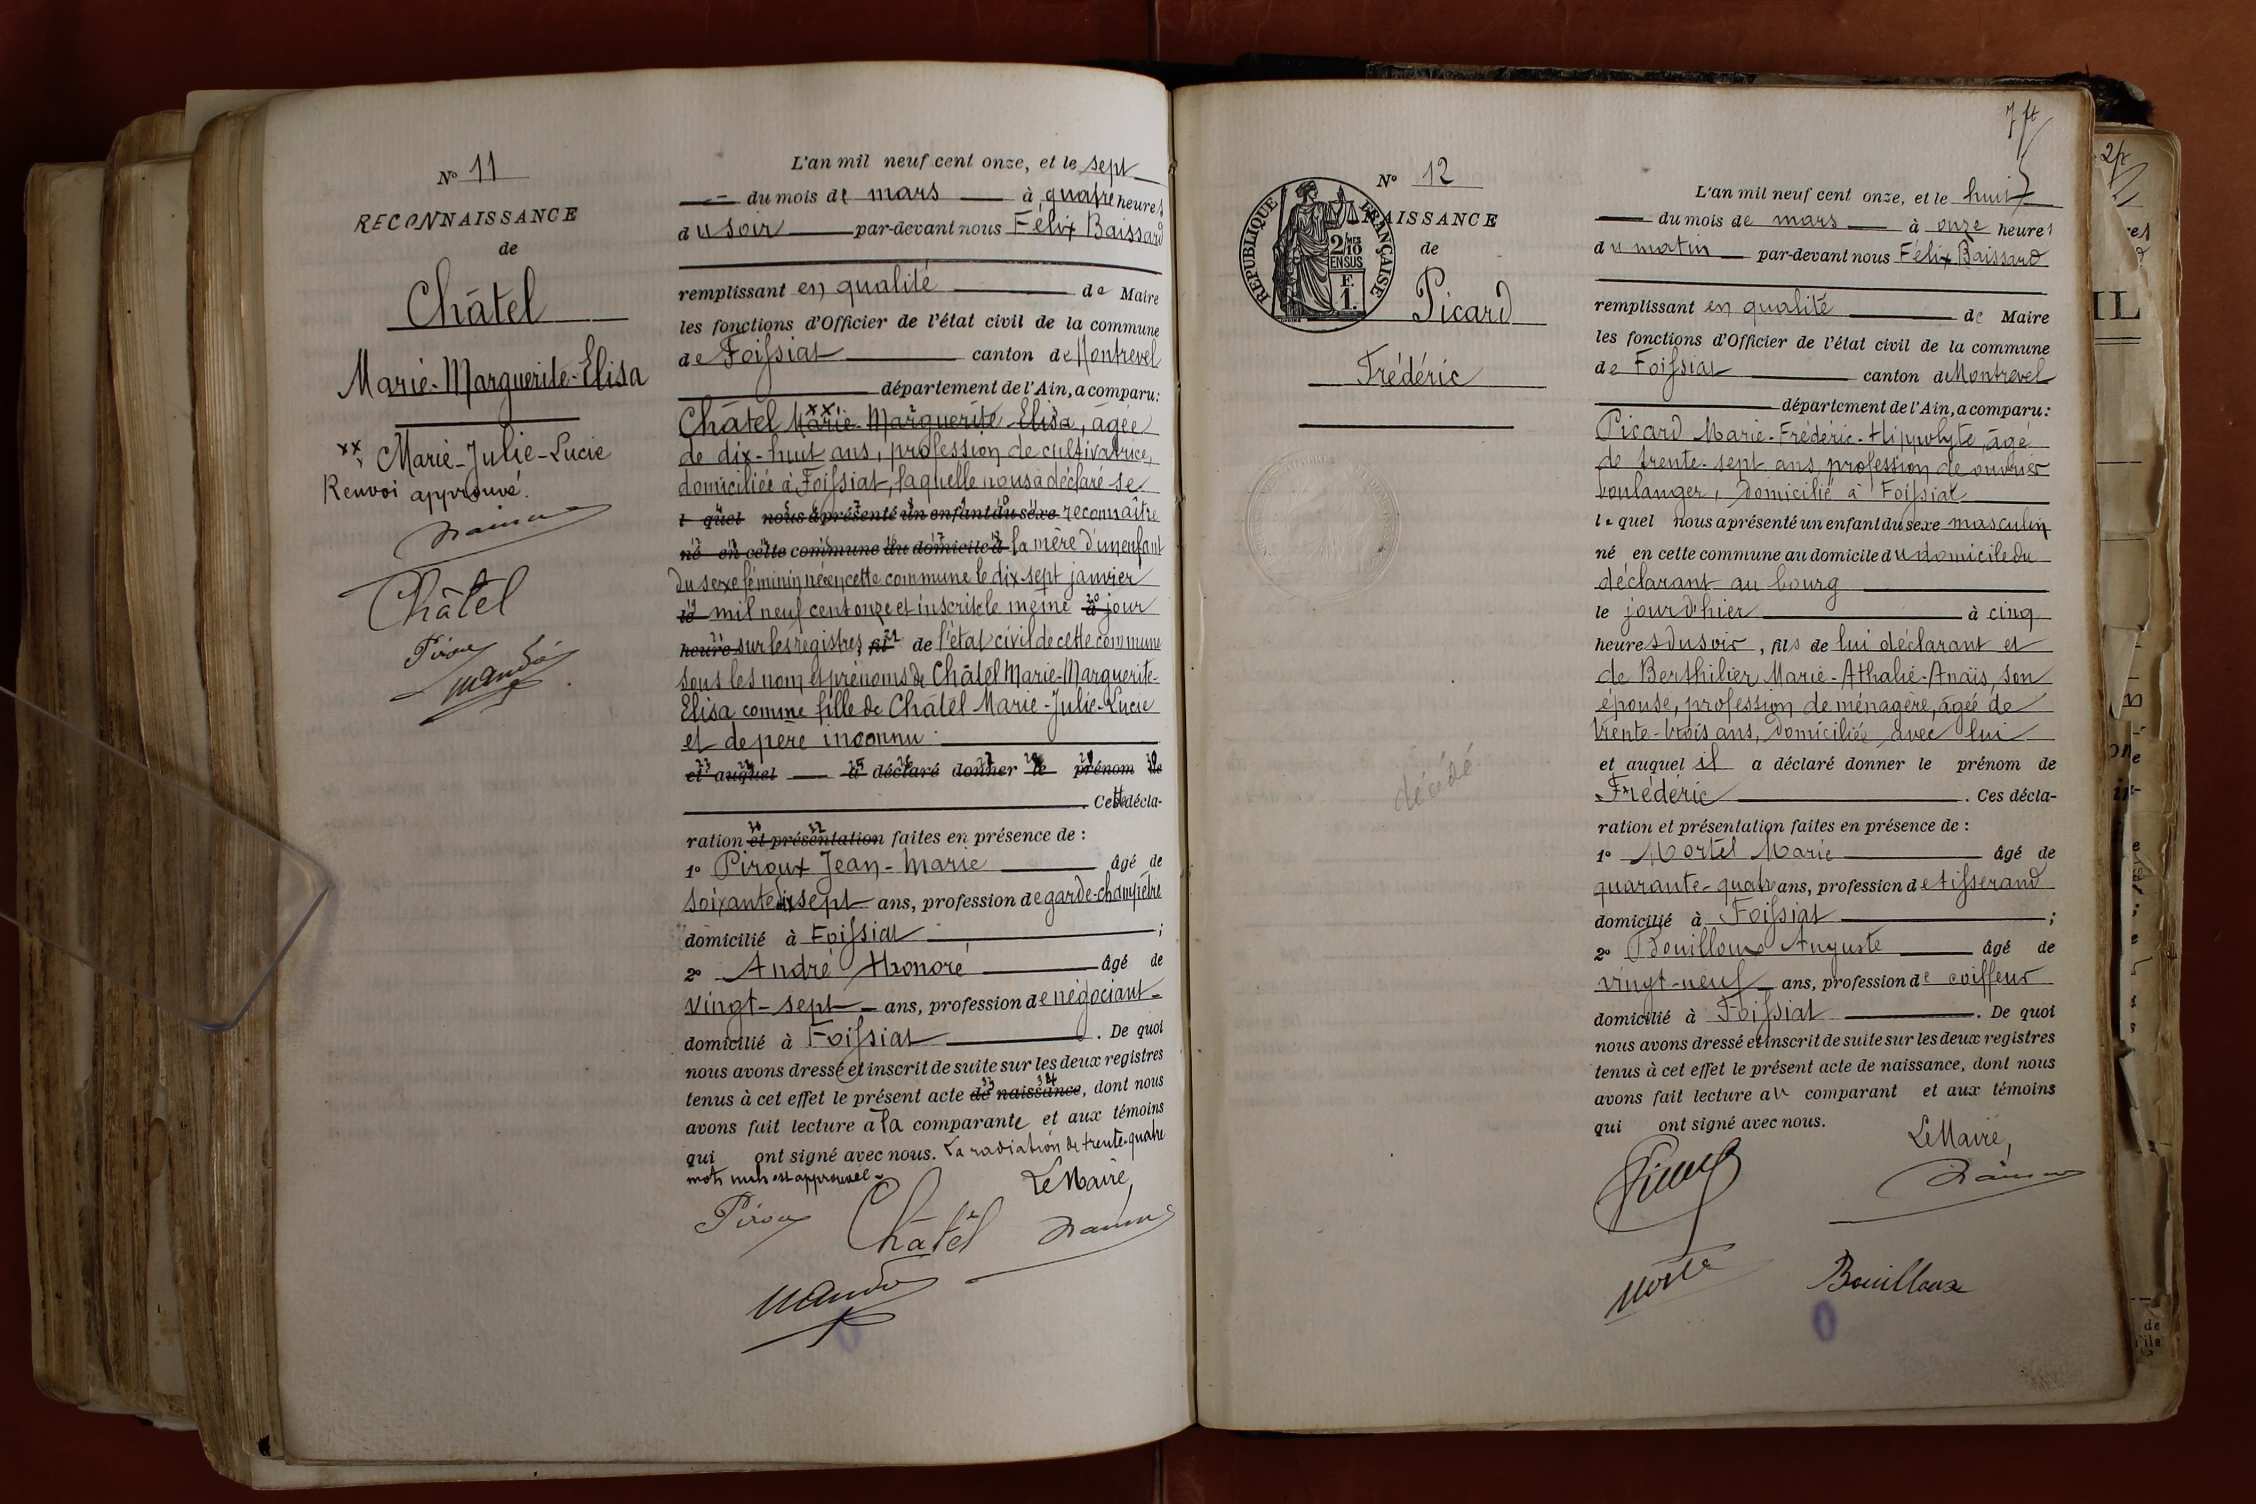 N° 11
RECONNAISSANCE
de
Châtel
Marie-Marguerite-Elisa
xx Marie-Julie-Lucie
Renvoi approuvé.
Châtel
Piroux
L'an mil neuf cent onze, et le sept
du mois de mars à quatre heures
du soir par-devant nous Félix Baissard
remplissant en qualité de Maire
les fonctions d'Officier de l'état civil de la commune
de Foissiat canton de Montrevel
département de l'Ain, a comparu:
Châtel xx Marie-Marguerite-Elisa, âgée
de dix-huit ans, profession de cultivatrice,
domiciliée à Foissiat, laquelle nous a déclaré se
l quel nous a présenté un enfant du sexe reconnaître
né en cette commune au domicile d la mère d'un enfant
du sexe féminin né en cette commune le dix-sept janvier
le mil neuf cent onze et inscrit le même à jour
heure sur les registres fil de l'état civil de cette commune
sous les nom et prénoms de Châtel Marie-Marguerite-
Elisa comme fille de Châtel Marie-Julie-Lucie
et de père inconnu.
et auquel a déclaré donner le prénom de
. Cette décla-
ration et présentation faites en présence de :
1° Piroux Jean-Marie âgé de
soixante dix sept ans, profession de garde-champêtre
domicilié à Foissiat ;
2° André Honoré âgé de
vingt-sept ans, profession de négociant
domicilié à Foissiat . De quoi
nous avons dressé et inscrit de suite sur les deux registres
tenus à cet effet le présent acte de naissance, dont nous
avons fait lecture à la comparante et aux témoins
qui ont signé avec nous. La radiation de trente-quatre
mots nuls est approuvée.
Le Maire,
Piroux Châtel
7 ft
N° 12
RÉPUBLIQUE FRANÇAISE
2/10 EN SUS
F. 1.
NAISSANCE
de
Picard
Frédéric
décédé
L'an mil neuf cent onze, et le huit
du mois de mars à onze heures
du matin par-devant nous Félix Baissard
remplissant en qualité de Maire
les fonctions d'Officier de l'état civil de la commune
de Foissiat canton de Montrevel
département de l'Ain, a comparu:
Picard Marie-Frédéric-Hippolyte, âgé
de trente-sept ans, profession de ouvrier
boulanger, domicilié à Foissiat
le quel nous a présenté un enfant du sexe masculin
né en cette commune au domicile du domicile du
déclarant au bourg
le jour d'hier à cinq
heures du soir, fils de lui déclarant et
de Berthilier Marie-Athalie-Anaïs, son
épouse, profession de ménagère, âgée de
trente-trois ans, domiciliée avec lui
et auquel il a déclaré donner le prénom de
Frédéric . Ces décla-
ration et présentation faites en présence de :
1° Mortel Marie âgé de
quarante-quatre ans, profession de tisserand
domicilié à Foissiat ;
2° Bouilloux Auguste âgé de
vingt-neuf ans, profession de coiffeur
domicilié à Foissiat . De quoi
nous avons dressé et inscrit de suite sur les deux registres
tenus à cet effet le présent acte de naissance, dont nous
avons fait lecture au comparant et aux témoins
qui ont signé avec nous.
Le Maire,
Bouilloux